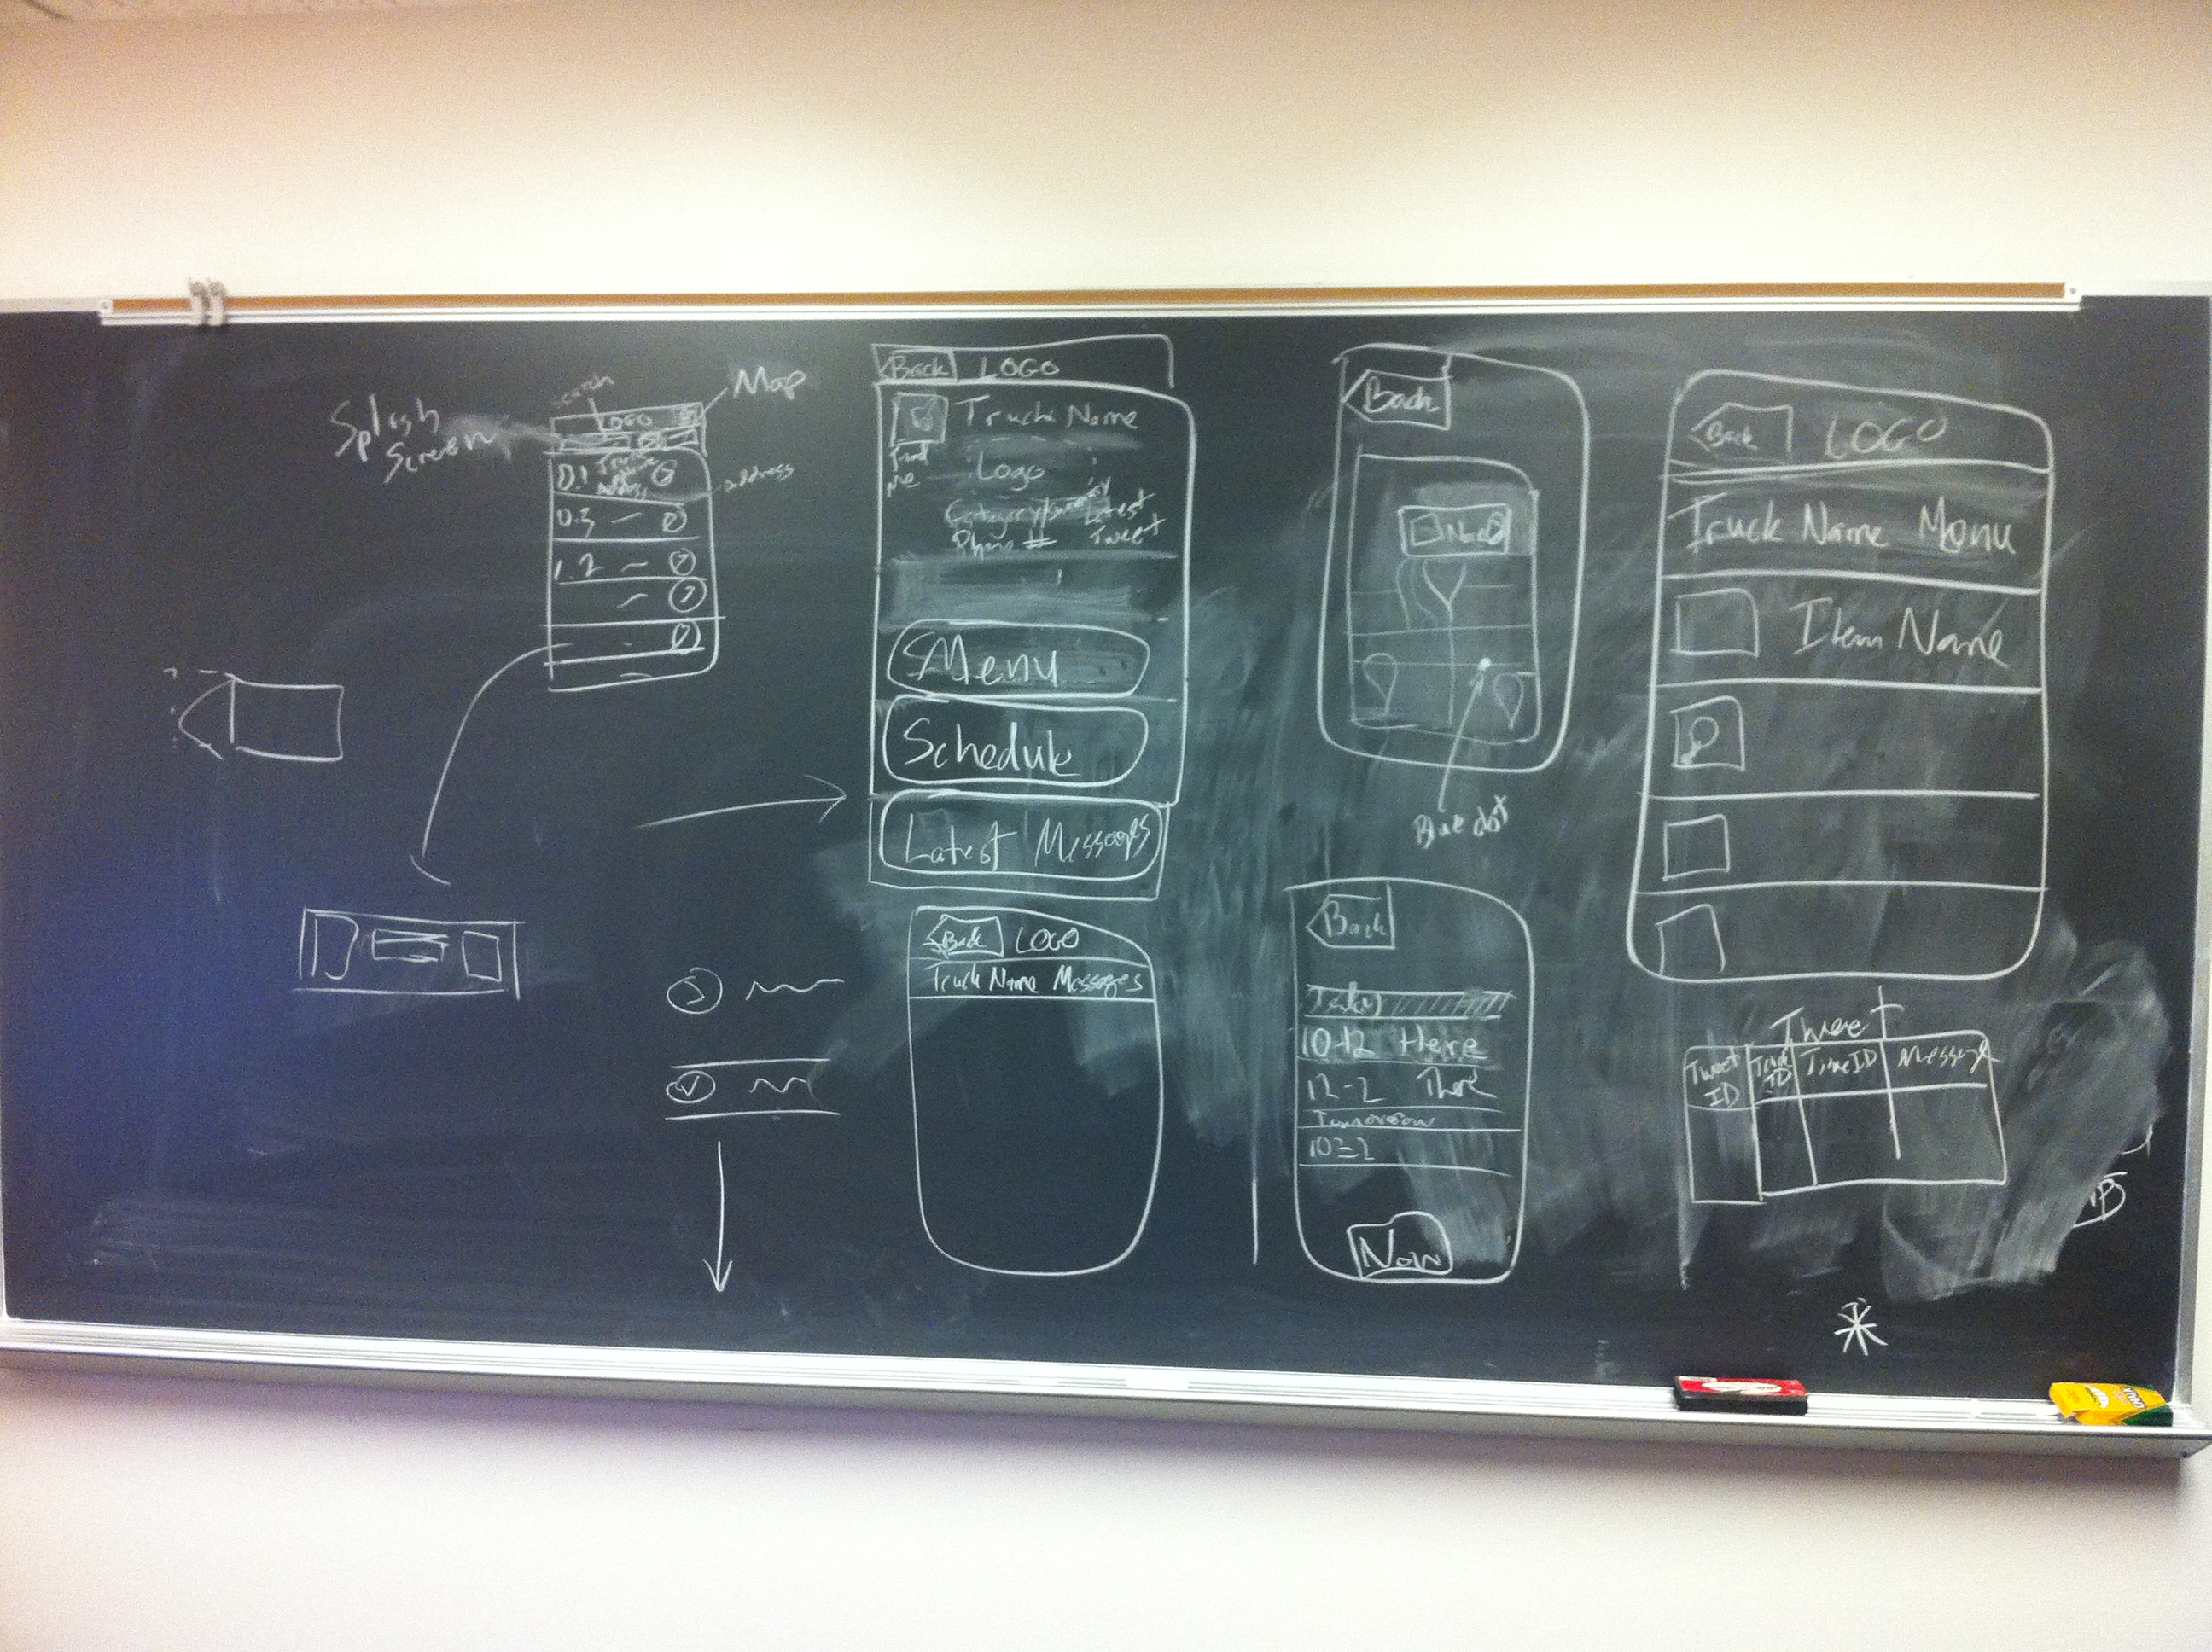 Splash
Screen
search
Map
Logo
0.1 Truck
address
address
0.3
1.2
Back LOGO
Truck Name
Logo
Category/
Phone # Latest
Tweet
Menu
Schedule
Latest Messages
Back LOGO
Truck Name Messages
Back
Blue dot
Back
Today
10-12 Here
12-2 There
Tomorrow
10-2
Now
Back LOGO
Truck Name Menu
Item Name
Tweet
Tweet ID
Truck ID
TimeID
Message